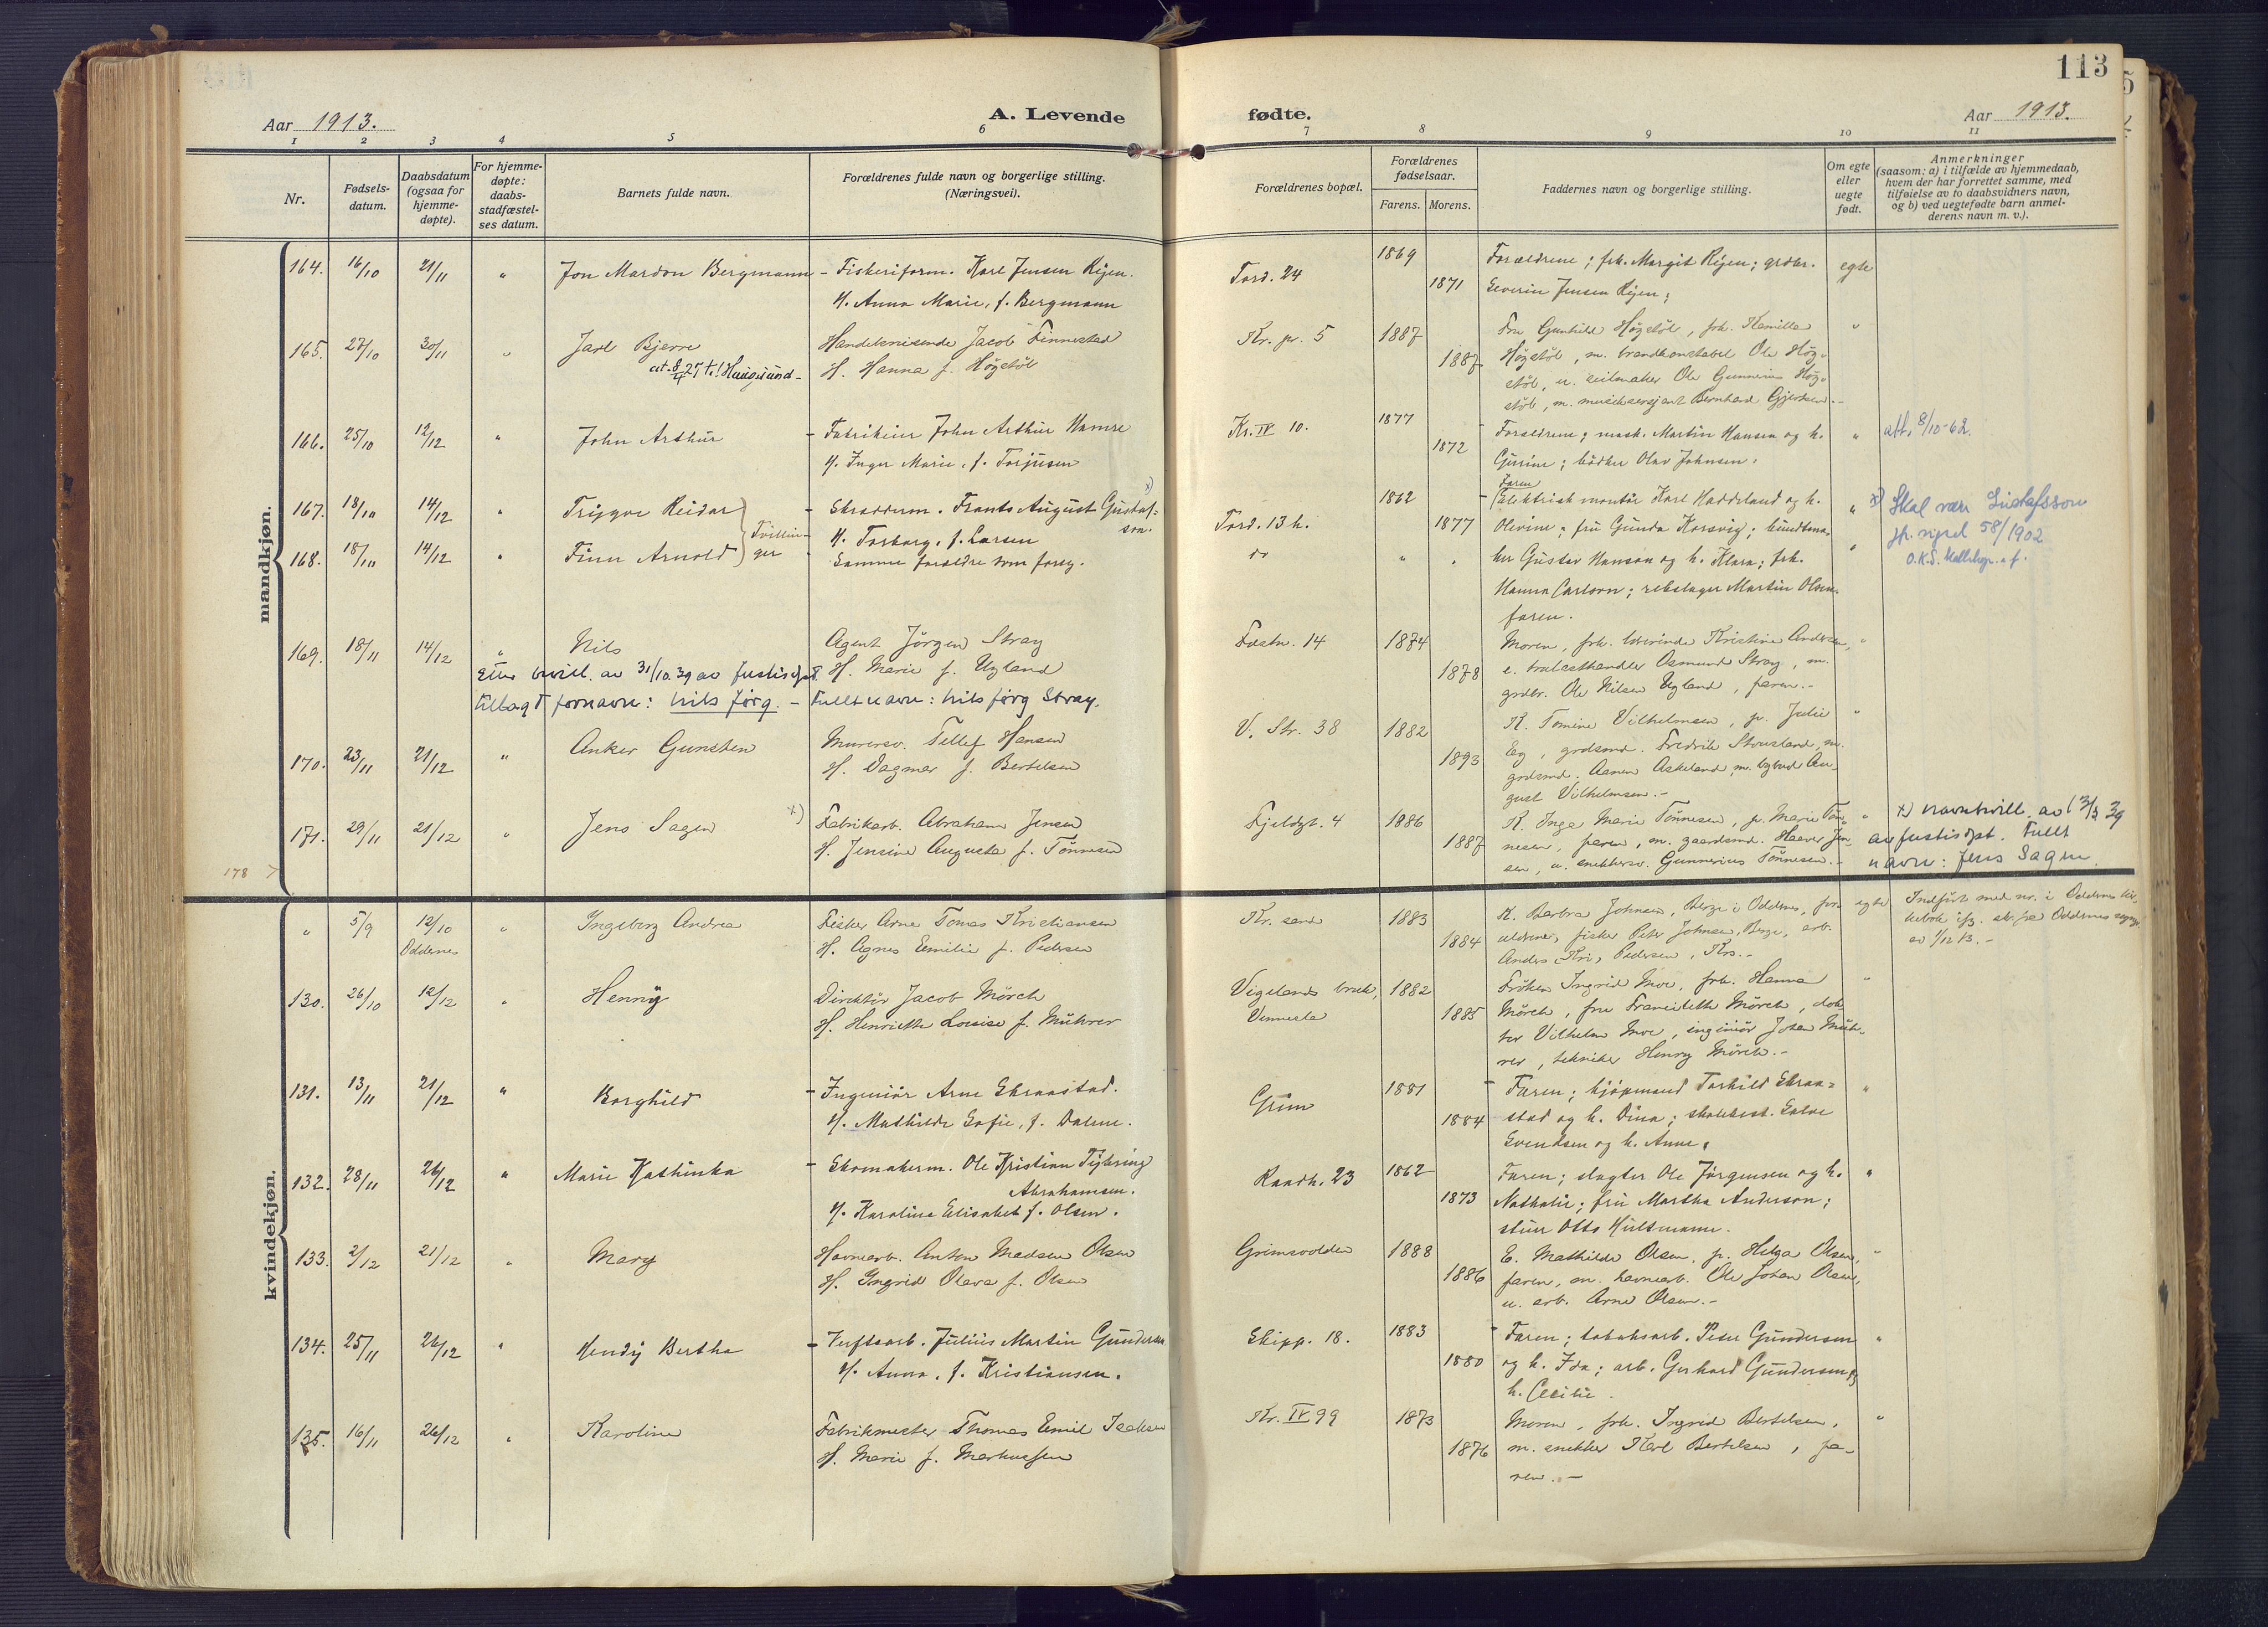 113
Aar 1913.
A. Levende
fødte.
Aar 1913.
1 2 3 4 5 6 7 8 9 10 11
Nr.
Fødsels-
datum.
Daabsdatum
(ogsaa for
hjemme-
døpte).
For hjemme-
døpte:
daabs-
stadfæstel-
ses datum.
Barnets fulde navn.
Forældrenes fulde navn og borgerlige stilling.
(Næringsvei).
Forældrenes bopæl.
Forældrenes
fødselsaar.
Farens. Morens.
Faddernes navn og borgerlige stilling.
Om egte
eller
uegte
født.
Anmerkninger
(saasom: a) i tilfælde av hjemmedaab,
hvem der har forrettet samme, med
tilføielse av to daabsvidners navn,
og b) ved uegtefødte barn anmel-
derens navn m. v.).
mandkjøn.
164. 16/10 21/11 " Jon Mardon Bergmann - Fiskeriform. Karl Jensen Rijen.
H. Anna Marie, f. Bergmann
Tord. 24 1869 1871
Forældrene; frk. Margit Rijen; grdbr.
Severin Jensen Rijen;
egte
165. 27/10 30/11 " Jarl Bjerre
Handelsreisende Jacob Finnestad
H. Hanna f. Høgstøl
Kr. pr. 5 1887 1887
Fru Gunhild Høgstøl, frk. Kamilla
Høgstøl, m. brandkonstabel Ole Høg-
støl, u. seilmaker Ole Gunnerius Høg-
støl, m. musiksersjant Bernhard Gjertsen.-
"
166. 25/10 12/12 " John Arthur - Fabrikeier John Arthur Hamre
H. Inger Marie, f. Torjusen
Kr. IV 10. 1877 1872
Forældrene; mask. Martin Hansen og h.
Gurine; bödker Olav Johnsen.
" att. 8/10-62.
167. 18/10 14/12 " Trygve Reidar - Skrædderm. Frants August Gustaf-
son. x)
H. Torborg, f. Larsen
Tvillin-
ger
168. 18/10 14/12 " Finn Arnold
Samme forældre som forrg.
Tord. 13 h. 1862 1877
do " "
Faren
Elektrisk montör Karl Haddeland og h.
Olevine; fru Gunda Korsvig; bundtma-
ker Gustav Hanson og h. Klara; frk.
Hanna Carlson; rebslager Martin Olsen
faren.
" x) Skal være Gustafsson
58/1902
169. 18/11 14/12 " Nils
Agent Jörgen Stray
H. Marie f. Ugland
Etter bevill. av 31/10.39 av Justisdpt.
tillagt fornavn: Nils Jörg. - Fullt navn: Nils Jörg Stray.
Fæstn. 14 1874 1878
Moren, frk. Kristine Andersen,
e. trælasthandler Osmund Stray, m.
grdbr. Ole Nilsen Ugland, faren.-
"
170. 23/11 21/12 " Anker Gunsten
Murersv. Tellef Hansen
H. Dagmar f. Bertelsen
V. Str. 38 1882 1893
K. Tomine Vilhelmsen, p. Julie
Eg, grdsmd. Fredrik Stousland, m.
grdsmd. Aanen Askeland, m. bybud Au-
gust Vilhelmsen.-
"
171. 29/11 21/12 " Jens Sagen x)
Fabrikarb. Abraham Jensen
H. Jensine Augusta f. Tönnesen
Fjeldgt. 4 1886 1887
K. Inga Marie Tönnesen, p. Marie Tön-
nesen, faren, m. gaardsmd. Haaver Jen-
sen, u. snekkersv. Gunnerius Tönnesen.-
" x) Navnbevill. av 13/3 39
av Justisdpt. Fullt
navn: Jens Sagen.
178
kvindekjøn.
" 5/9 12/10 " Ingeborg Andrea
Oddernes
Fisker Arne Tomas Kristiansen
H. Agnes Emilie f. Pedersen
Kr. sand 1883 1884
K. Barbra Johnsen, Berge i Oddernes, for-
ældrene, fisker Peter Johnsen, Berge, arb.
Anders Kri. Pedersen, Krs.-
egte
Indført med nr. i Oddernes kir-
kebok ifg.
av 1/12 13.-
130. 26/10 12/12 " Henny
Direktör Jacob Mörch
H. Henriette Louise f. Mührer
Vigelands bruk,
Vennesla
1882 1885
Fröken Ingrid Moe, frk. Hanna
Mörch, fru Franciska Mörch, dok-
tor Vilhelm Moe, ingeniör Johan Müh-
rer, tekniker Henry Mörch.-
"
131. 13/11 21/12 " Borghild - Ingeniör Arne Skraastad.
H. Mathilde Sofie, f. Dalene.
Grim 1881 1884
- Faren; kjøpmand Torkild Skraa-
stad og h. Dina; skolebest. Salve
Svendsen og h. Anne.
"
132. 28/11 26/12 " Marie Kathinka - Skomakerm. Ole Kristian Tybring
Abrahamsen.
H. Karoline Elisabet f. Olsen.
Raadh. 23 1862 1873
Faren; slagter Ole Jörgensen og h.
Nathalie; fru Martha Anderson;
stuer Otto Hultmann.
"
133. 2/12 21/12 " Mary
Havnearb. Anton Madsen Olsen
H. Ingrid Olava f. Olsen
Grimsvolden 1888 1886
E. Mathilde Olsen, p. Helga Olsen,
faren, m. havnearb. Ole Johan Olsen,
u. arb. Arne Olsen.-
"
134. 25/11 26/12 " Hendy Bertha - Verftsarb. Julius Martin Gundersen
H. Anna, f. Kristiansen.
Skipp. 18. 1883 1880
- Faren; tobaksarb. Peter Gundersen
og h. Ida; arb. Gerhard Gundersen og
h. Cecilie.
"
135. 16/11 26/12 " Karoline
Fabrikmester Thomas Emil Isaksen
H. Marie f. Markussen
Kr. IV 99 1873 1876
Moren, frk. Ingrid Bertelsen,
m. snekker Karl Bertelsen, fa-
ren.-
"